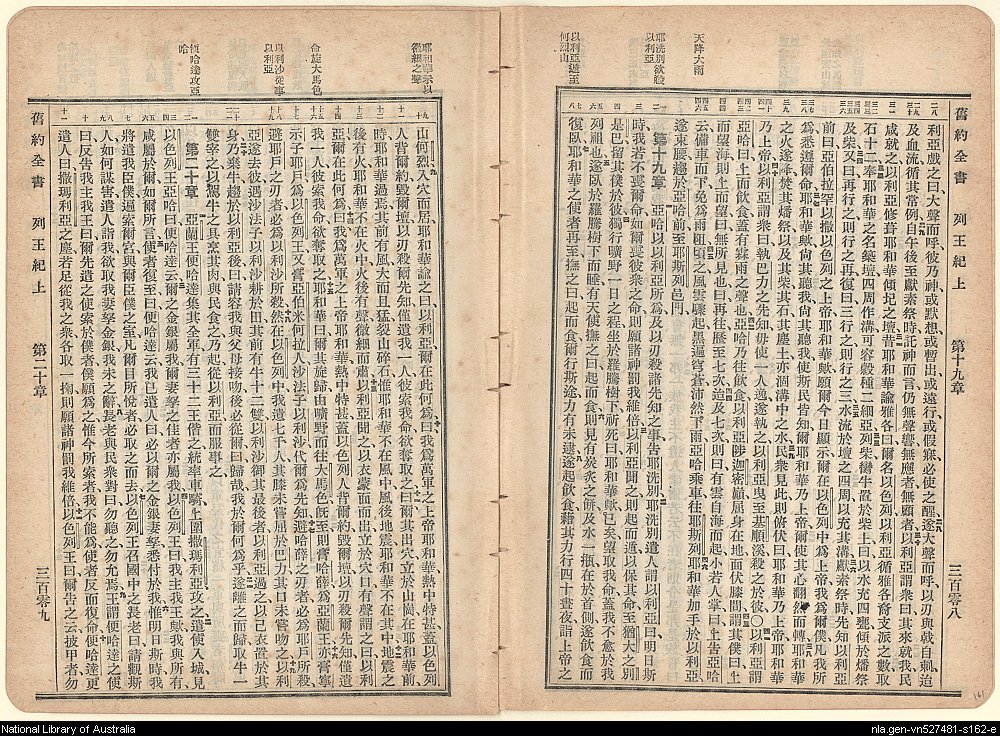 舊約全書 列王紀上 第十九章 三百零八
天降大雨
耶洗別欲殺
以利亞
以利亞遁至
何烈山
利亞戲之曰大聲而呼彼乃神或默想或暫出或遠行或假寐必使之醒遂大聲而呼以刃與戟自刺迨
及血流循其常例自午後至獻素祭時託神而言仍無聲響無應者無顧者以利亞謂衆曰其來就我民
咸就之以利亞修葺耶和華傾圮之壇昔耶和華諭雅各曰爾名必以色列以利亞循雅各裔支派之數取
石十二奉耶和華之名築壇四周作溝可容穀種二細亞列柴臠牛置於柴上曰以水充四甕傾於燔祭
及柴又曰再行之則行之再復曰三行之則行之三水流於壇之四周以充其溝獻素祭時先知以利亞
前曰亞伯拉罕以撒以色列之上帝耶和華歟願爾今日顯示爾在以色列中爲上帝我爲爾僕凡我所
爲悉遵爾命耶和華歟尚其聽我尚其聽我使斯民皆知爾耶和華乃上帝爾使其心翻然而轉耶和華
之火遂降焚其燔祭以及其柴其石其塵土亦涸溝中之水民衆見此俯伏曰耶和華乃上帝耶和華
乃上帝以利亞謂衆曰執巴力之先知毋使一人逸遂執之以利亞曳至基順溪殺之於彼○以利亞謂
亞哈曰上而飲食蓋有霖雨之聲也亞哈乃往飲食以利亞陟迦密巔屈身在地面伏膝間謂其僕曰上
而望海則上而望曰無所見也曰再往歷至七次迨及七次則曰有雲自海而起小若人掌曰上告亞哈
云備車而下免爲雨阻頃之風雲驟起黑遍穹蒼沛然下雨亞哈乘車往耶斯列耶和華加手於以利亞
遂束腰趨於亞哈前至耶斯列邑門
第十九章 亞哈以以利亞所爲及以刃殺諸先知之事告耶洗別耶洗別遣人謂以利亞曰明日斯
時我若不要爾命如爾要衆之命則願諸神罰我維倍以利亞聞之則起而遁以保其命至猶大之別
是巴留其僕於彼獨行曠野一日之程坐於羅騰樹下祈死曰耶和華歟已矣望取我命蓋我不愈於我
列祖也遂臥於羅騰樹下而睡有天使撫之曰起而食則見有炭炙之餅及水一瓶在於首側遂飲而食
復臥耶和華之使者再至撫之曰起而食爾行斯途力有未逮遂起飲食藉其力行四十晝夜詣上帝之
耶和華示以
微細之聲
命旋大馬色
以利沙從事
以利亞
便哈達攻亞
哈
山何烈入穴而居耶和華諭之曰以利亞爾在此何爲曰我爲萬軍之上帝耶和華熱中特甚蓋以色列
人背爾約毀爾壇以刃殺爾先知僅遺我一人彼索我命欲奪取之曰爾其出穴立於山崗在耶和華前
時耶和華過焉其前有風大而且猛裂山碎石惟耶和華不在風中風後地震耶和華不在其中地震之
後有火耶和華不在火中火後有聲微細而肅以利亞聞之以衣蒙面而出立於穴口有聲謂之曰以利
亞爾在此何爲曰我爲萬軍之上帝耶和華熱中特甚蓋以色列人背爾約毀爾壇以刃殺爾先知僅遺
我一人彼索我命欲奪取之耶和華曰爾其旋歸由曠野而往大馬色既至則膏哈薛爲亞蘭王亦膏寧
示子耶戶爲以色列王又膏亞伯米何拉人沙法子以利沙代爾爲先知避哈薛之刃者必爲耶戶所殺
避耶戶之刃者必爲以利沙所殺然在以色列中我遺七千人其膝未嘗屈於巴力其口未嘗吻之以利
亞遂去彼遇沙法子以利沙耕於田其前有牛十二雙以利沙御其最後者以利亞過之以己衣置於其
身乃棄牛趨於以利亞後曰請容我與父母接吻後必從爾曰歸哉我於爾何爲乎遂離之而歸取牛一
雙宰之以駕牛之具烹其肉與民食之乃起從以利亞而服事之
第二十章 亞蘭王便哈達集其全軍有三十二王偕之統率車騎上圍撒瑪利亞攻之遣使入城見
以色列王亞哈曰便哈達云爾之金銀屬我爾妻孥之佳者亦屬我以色列王曰我主我王歟我與所有
咸屬於爾如爾所言使者復至曰便哈達云我已遣人曰必以爾之金銀妻孥悉付於我惟明日斯時我
將遣我臣僕遍索爾宮與爾臣僕之室凡爾目所悅者必取之而去以色列王召國中之長老曰請觀斯
人如何謀害遣人詣我欲取我妻孥金銀我未之辭長老與民衆對曰勿聽之勿允焉王謂便哈達之使
曰反告我主我王曰爾先遣之使索於僕者僕願爲之惟今所索者我不能爲使者反而復命便哈達更
遣人曰撒瑪利亞之塵若足從我之衆各取一掬則願諸神罰我維倍以色列王曰爾告之云披甲者勿
舊約全書 列王紀上 第二十章 三百零九
National Library of Australia
nla.gen-vn527481-s162-e